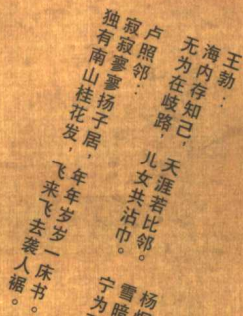 王勃：
海内存知己，天涯若比邻。
无为在歧路，儿女共沾巾。
卢照邻：
寂寂寥寥扬子居，年年岁岁一床书。
独有南山桂花发，飞来飞去袭人裾。
杨炯
雪暗
宁为